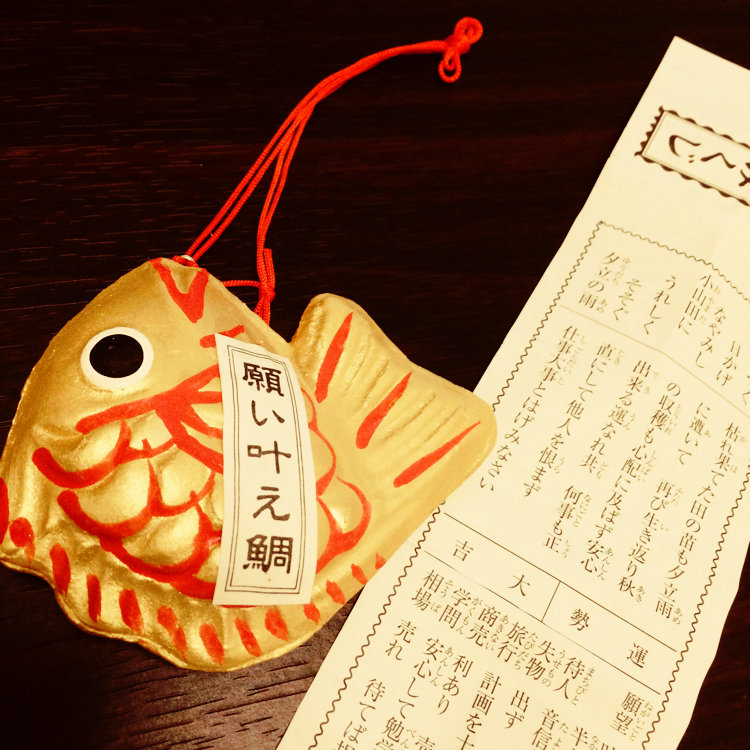 願い叶え鯛
くじ
かげ
なやみし
小山田に
うれしく
そそぐ
夕立の雨
枯れ果てた田の苗も夕立雨
に逢いて 再び生き返り秋
の収穫も心配に及ばず安心
出来る運なれ共 何事も正
直にして他人を恨まず
仕事大事とはげみなさい
運勢 大吉
願望
待人 音信
失物 出ず
旅行 計画を十
商売 利あり 売
学問 安心して勉学
相場 売れ 待てば